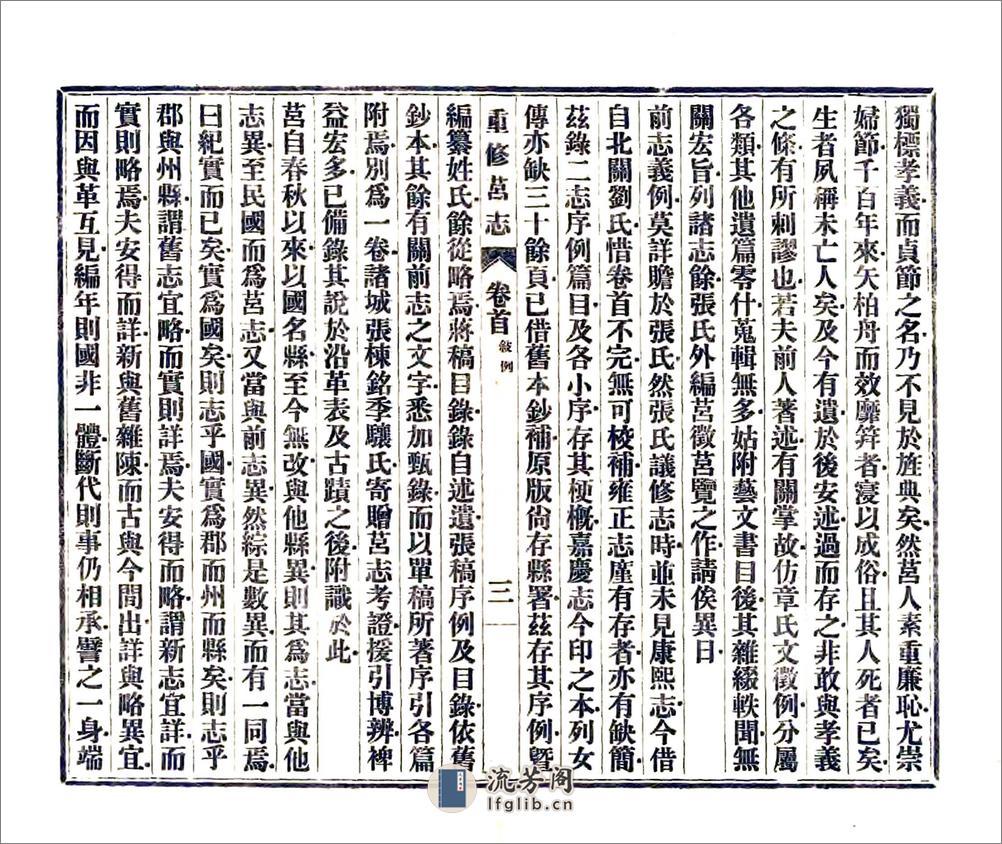 獨標孝義而貞節之名乃不見於旌典矣然莒人素重廉恥尤崇
婦節千百年來矢柏舟而效靡笄者寖以成俗且其人死者已矣
生者夙稱未亡人矣及今有遺於後安述過而存之非敢與孝義
之條有所刺謬也若夫前人著述有關掌故仿章氏文徵例分屬
各類其他遺篇零什蒐輯無多姑附藝文書目後其雜綴軼聞無
關宏旨列諸志餘張氏外編莒徵莒覽之作請俟異日
前志義例莫詳贍於張氏然張氏議修志時並未見康熙志今借
自北關劉氏惜卷首不完無可校補雍正志廑有存者亦有缺簡
茲錄二志序例篇目及各小序存其梗概嘉慶志今印之本列女
傳亦缺三十餘頁已借舊本鈔補原版尙存縣署茲存其序例曁
重修莒志 卷首 敍例 三
編纂姓氏餘從略焉將稿目錄錄自述遺張稿序例及目錄依舊
鈔本其餘有關前志之文字悉加甄錄而以單稿所著序引各篇
附焉別爲一卷諸城張棟銘季驤氏寄贈莒志考證援引博辨裨
益宏多已備錄其說於沿革表及古蹟之後附識於此
莒自春秋以來以國名縣至今無改與他縣異則其爲志當與他
志異至民國而爲莒志又當與前志異然綜是數異而有一同焉
曰紀實而已矣實爲國矣則志乎國實爲郡而州而縣矣則志乎
郡與州縣謂舊志宜略而實則詳焉夫安得而略謂新志宜詳而
實則略焉夫安得而詳新與舊雜陳而古與今間出詳與略異宜
而因與革互見編年則國非一體斷代則事仍相承譬之一身端
流芳阁
lfglib.cn